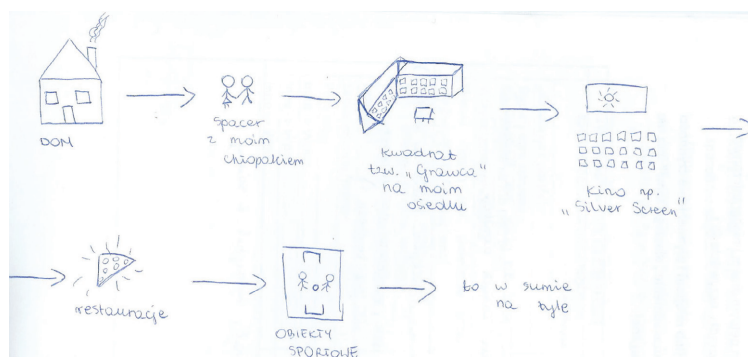 DOM
spacer
z moim
chłopakiem
kwadrat
tzw. „Grawca"
na moim
osiedlu
kino np.
„Silver Screen"
restauracje
OBIEKTY
SPORTOWE
to w sumie
na tyle